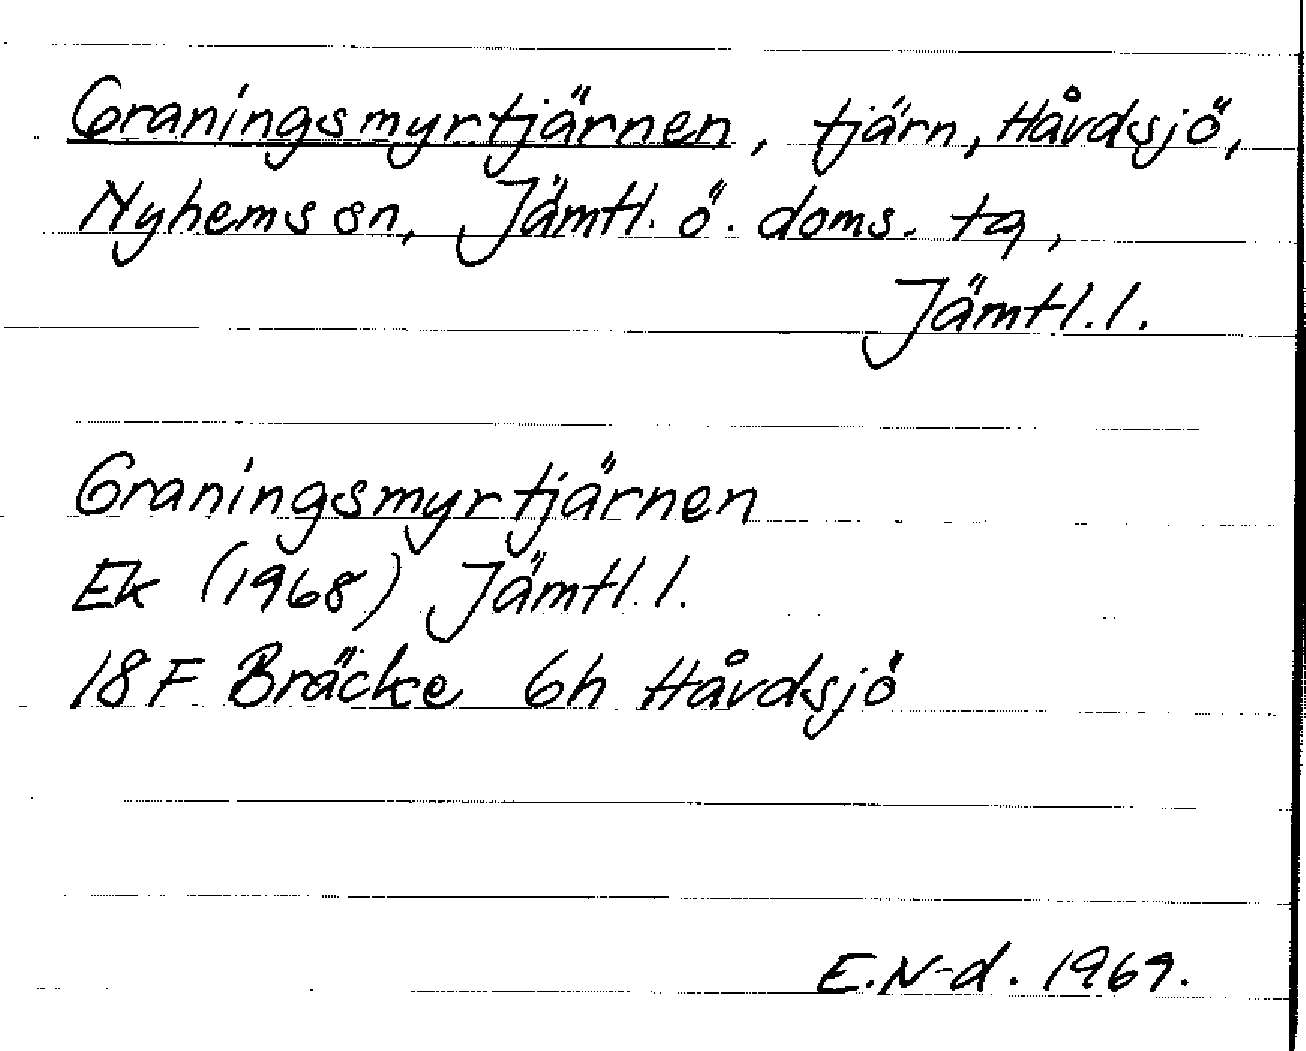 Graningsmyrtjärnen, tjärn, Håvdsjö,
Nyhems sn, Jämtl. ö. doms. tg,
Jämtl. l.
Graningsmyrtjärnen
Ek (1968) Jämtl. l.
18F Bräcke 6h Håvdsjö
E.N-d. 1969.